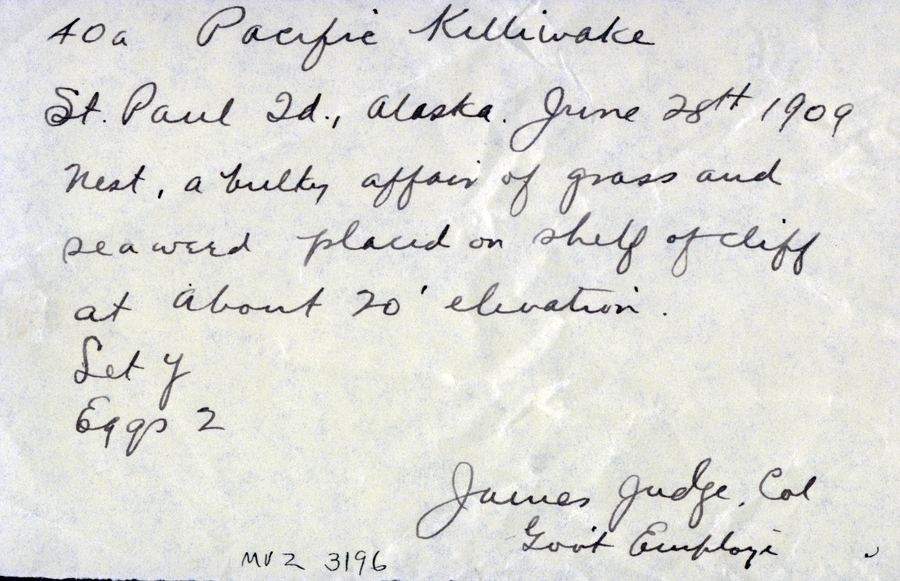 40a Pacific Killiwake
St. Paul Id., Alaska. June 28th 1909
Nest, a bulky affair of grass and
seaweed placed on shelf of cliff
at about 20' elevation.
Set y
Eggs 2
James Judge, Col
Gov't Employe
MVZ 3196